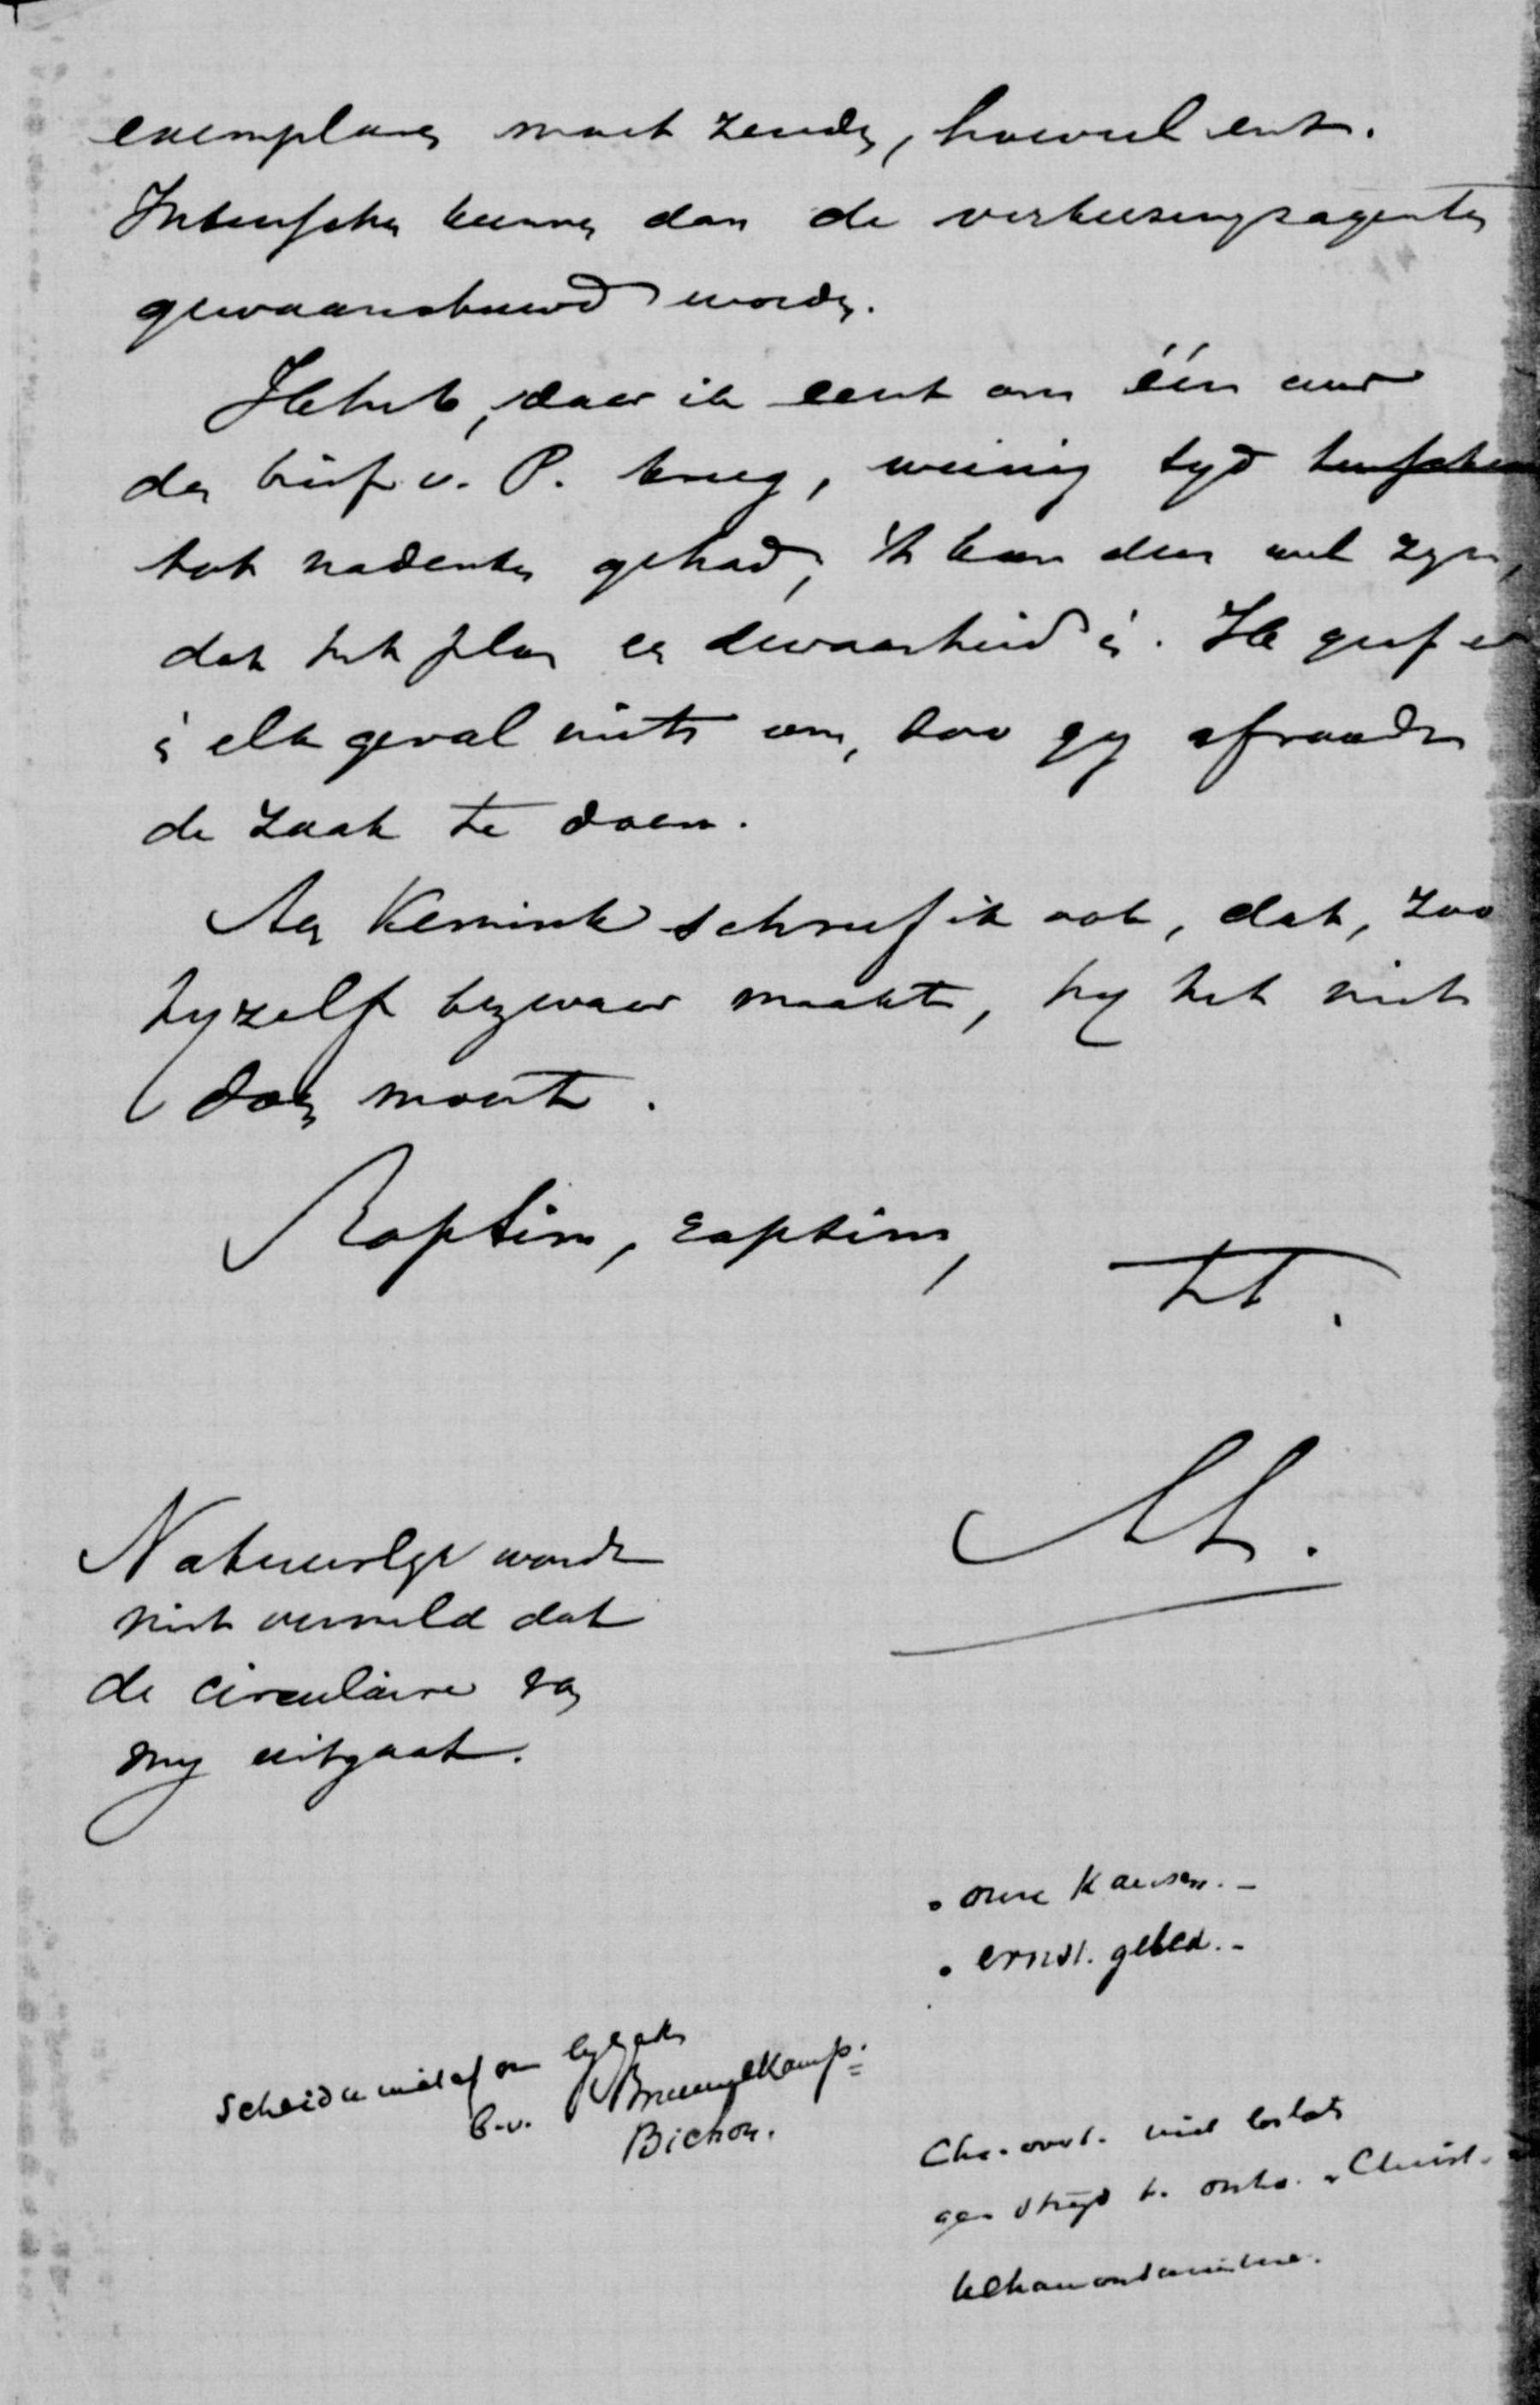 exemplaren moet zenden, hoeveel enz.
Intusschen kunnen dan de verkiezingsagenten
gewaarschuwd worden.
Ik heb, daar ik eerst om één uur
den brief v. P. kreeg, weinig tyd
tot nadenken gehad, 't kan dus wel zyn,
dat het plan een dwaasheid is. Ik geef er
in elk geval niets om, zoo gy afraadt
de zaak te doen.
Aan Kemink schreef ik ook, dat, zoo
hyzelf bezwaar maakte, hy het niet
doen moest.
Raptim, raptim,
tt.
Natuurlyk wordt
niet vermeld dat
de circulaire van
my uitgaat.
onze Kansen.-
ernst. gebed.-
Scheidt u niet af om
b.v. Brummelkamp.
Bichon.
niet
strijd
"Christ.